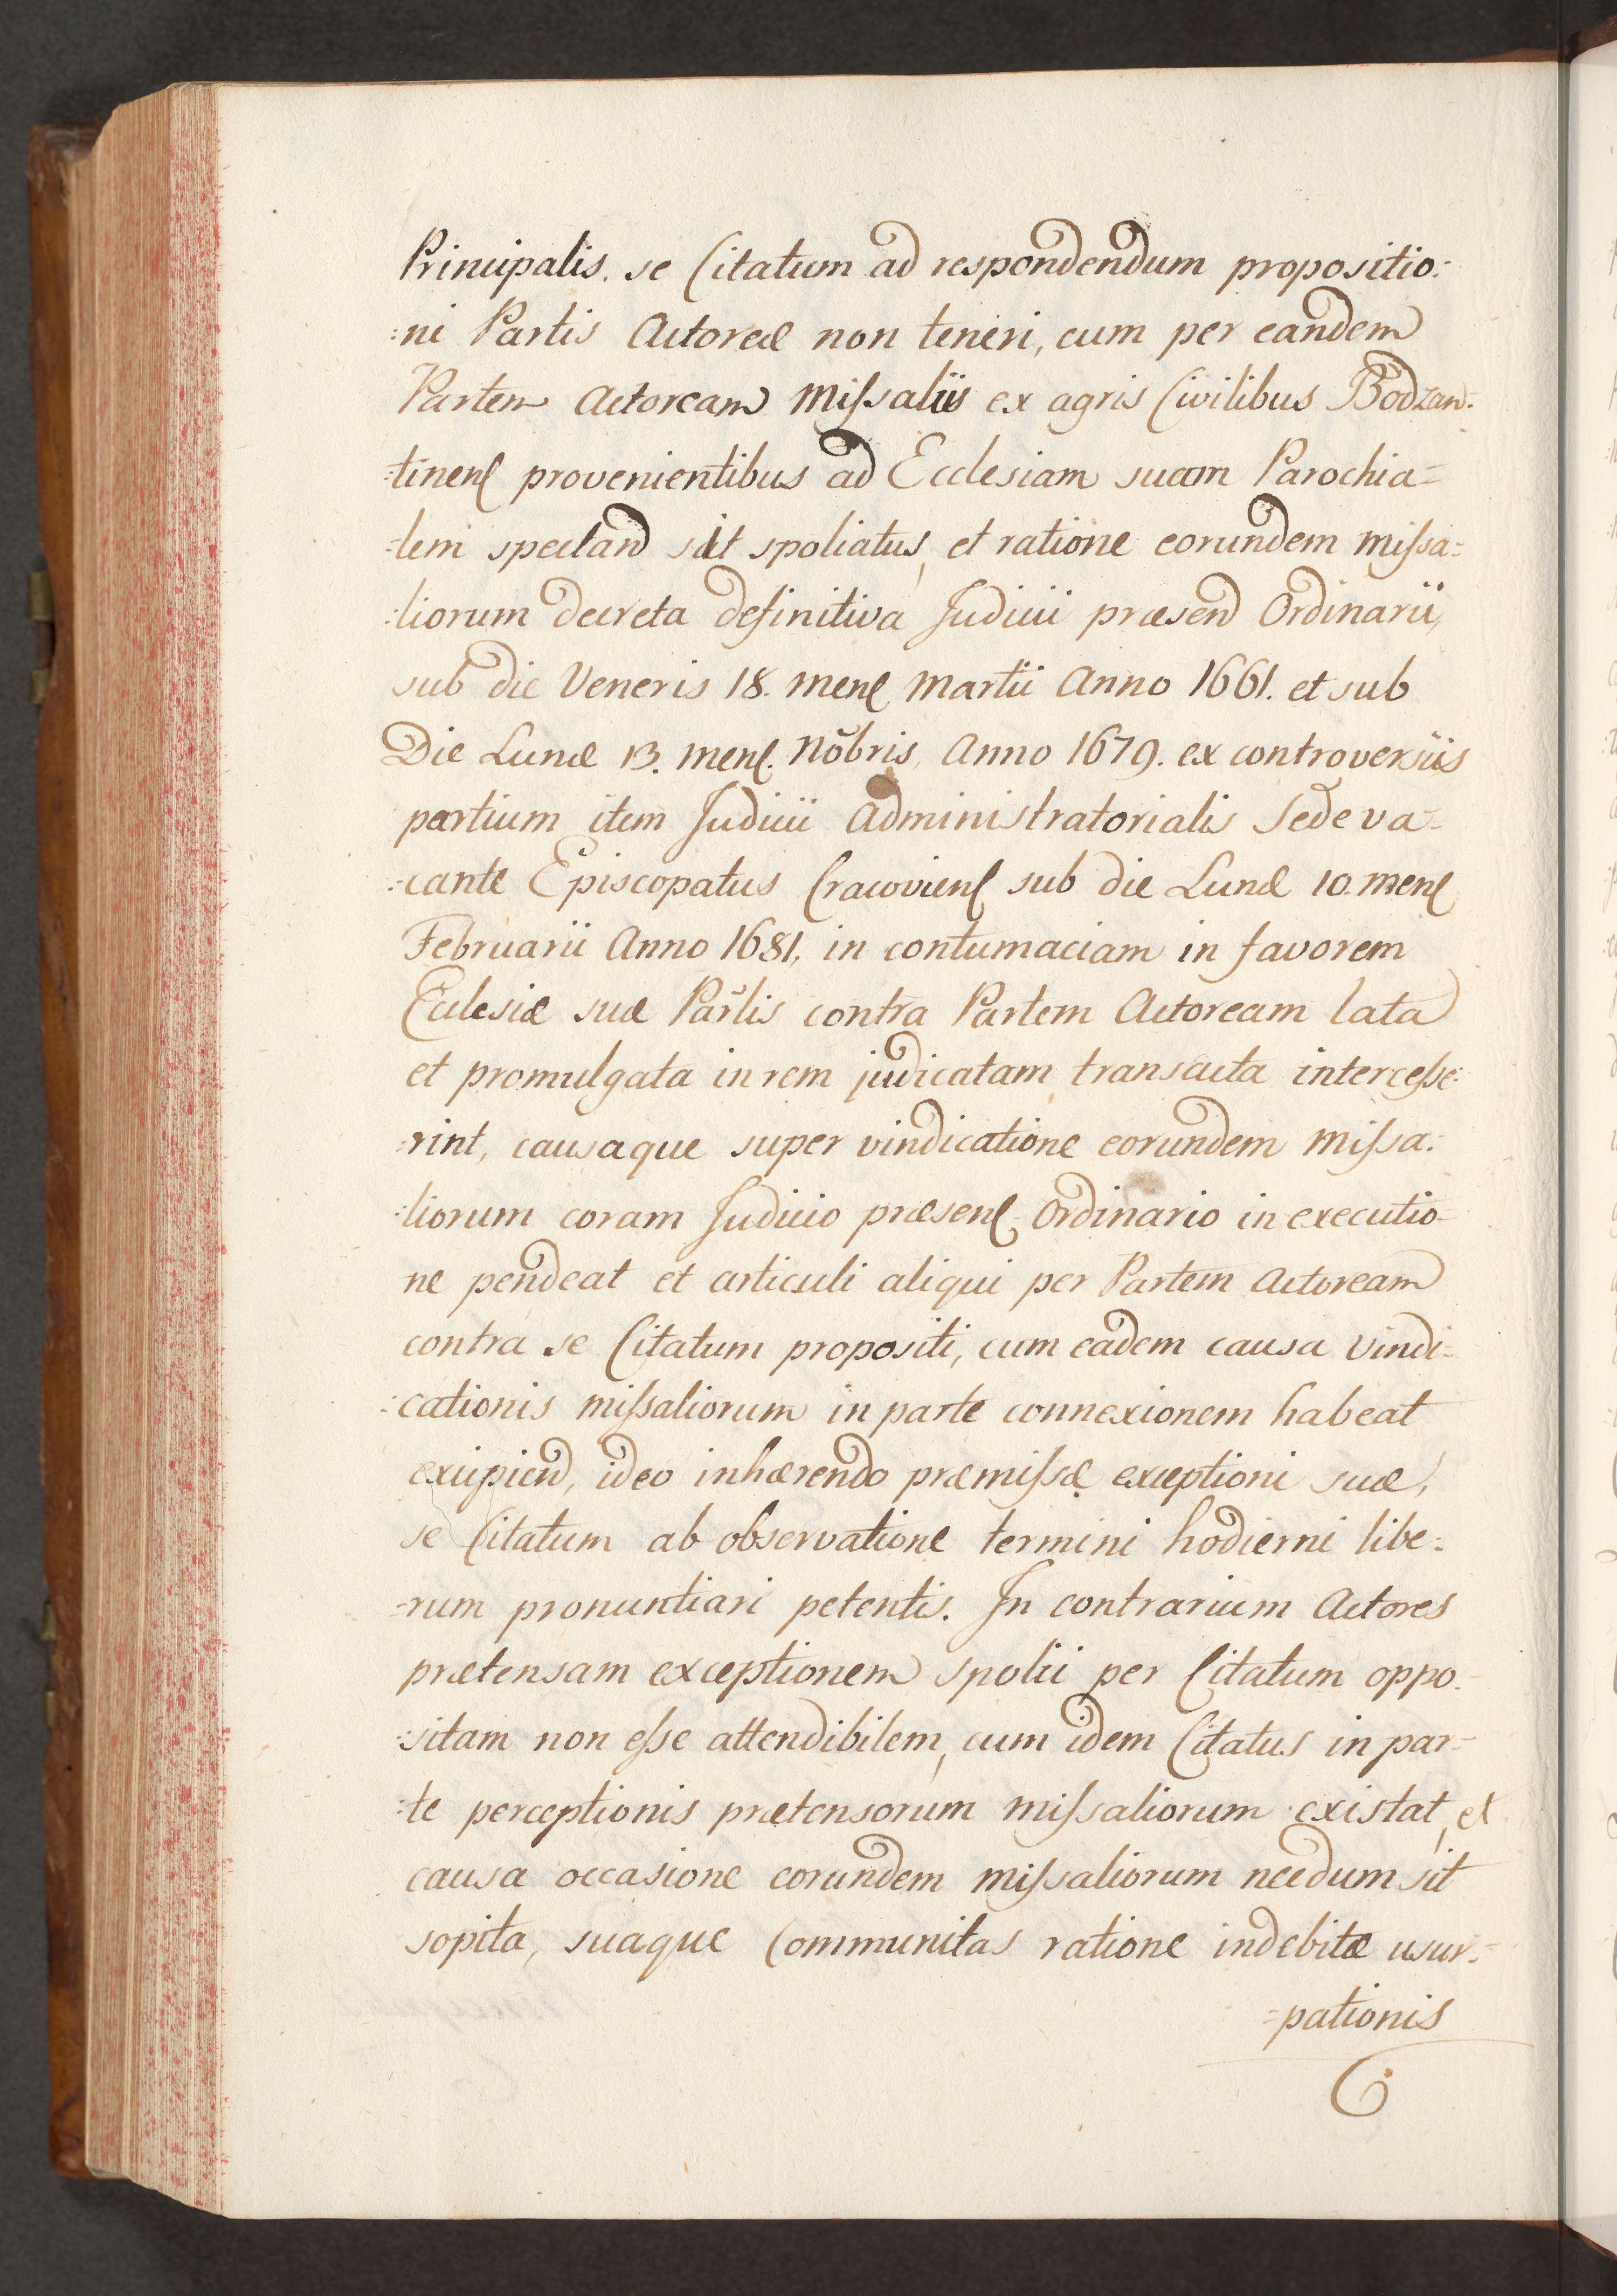 Principalis. se Citatum ad respondendum propositio:
:ni Partis Actoreæ non teneri, cum per eandem
Partem Actoream Miſsaliis ex agris Civilibus Bodzan:
:tinenſ provenientibus ad Ecclesiam suam Parochia=
:lem spectand sit spoliatus, et ratione eorundem miſsa=
:liorum decreta definitiva Judicii præsend Ordinarii,
sub die Veneris 18. menſ Martii Anno 1661. et sub
Die Lunæ 13. menſ. Nōbris, Anno 1679. ex controversiis
partium item Judicii Administratorialis Sede va=
:cante Episcopatus Cracovienſ sub die Lunæ 10. menſ
Februarii Anno 1681, in contumaciam in favorem
Ecclesiæ suæ Par̃lis contra Partem Actoream lata
et promulgata in rem judicatam transacta interceſse:
:rint, causaque super vindicatione eorundem Miſsa:
:liorum coram Judicio præsenſ Ordinario in executio=
ne pendeat et articuli aliqui per Partem Actoream
contra se Citatum propositi, cum eadem causa vindi:
:cationis miſsaliorum in parte connexionem habeat
excipiend, ideo inhærendo præmiſsæ exceptioni suæ,
se Citatum ab observatione termini hodierni libe:
=rum pronuntiari petentis. In contrarium Actores
prætensam exceptionem spolii per Citatum oppo=
:sitam non eſse attendibilem, cum idem Citatus in par=
:te perceptionis prætensorum miſsaliorum existat, et
causa occasione eorundem miſsaliorum necdum sit
sopita, suaque Communitas ratione indebitæ usur=
=pationis